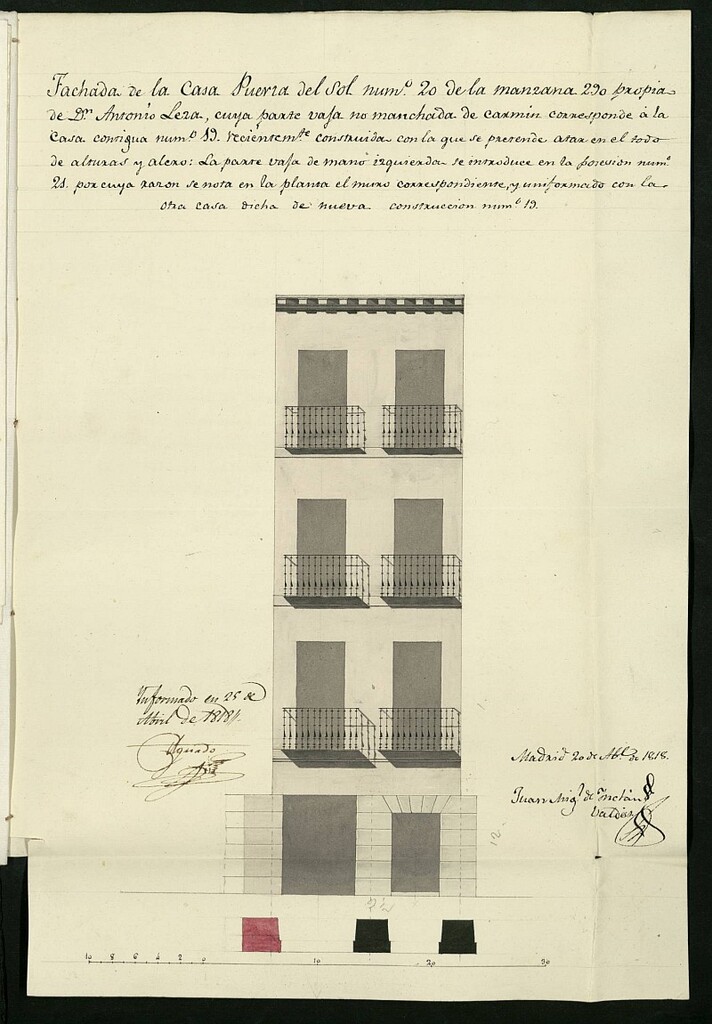 Fachada de la Casa Puerta del Sol num.º 20 de la manzana 290 propia
de D.n Antonio Leza, cuya parte vaja no manchada de carmin corresponde à la
Casa contigua num.º 19. recientem.te construida con la que se pretende atar en el todo
de alturas y alero: La parte vaja de mano izquierda se introduce en la posesion num.º
21. por cuya razon se nota en la planta el muro correspondiente, y uniformado con la
otra casa dicha de nueva construccion num.º 19.
Informado en 25 de
Abril de 1818
Aguado
Madrid 20 de Ab.l de 1818.
Juan Mig.l de Inclán
Valdés
12
7½
10 8 6 4 2 0 10 20 30